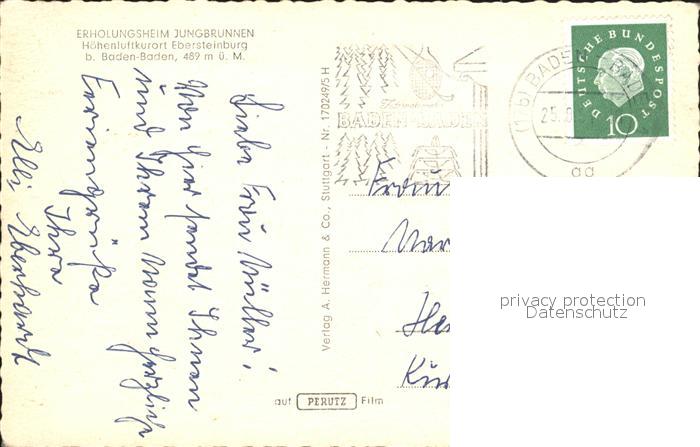 ERHOLUNGSHEIM JUNGBRUNNEN
Höhenluftkurort Ebersteinburg
b. Baden-Baden, 489 m ü. M.
Liebe Frau Müller!
Von hier sendet Ihnen
und Ihrem Mann herzliche
Feriengrüße
Ihre
Elli Eberhardt
Verlag A. Hermann & Co., Stuttgart - Nr. 170249/5 H
auf PERUTZ Film
BADEN-BADEN
(17b) BADEN-BADEN
25.
DEUTSCHE BUNDESPOST
10
Frau
Mar
He
privacy protection
Datenschutz